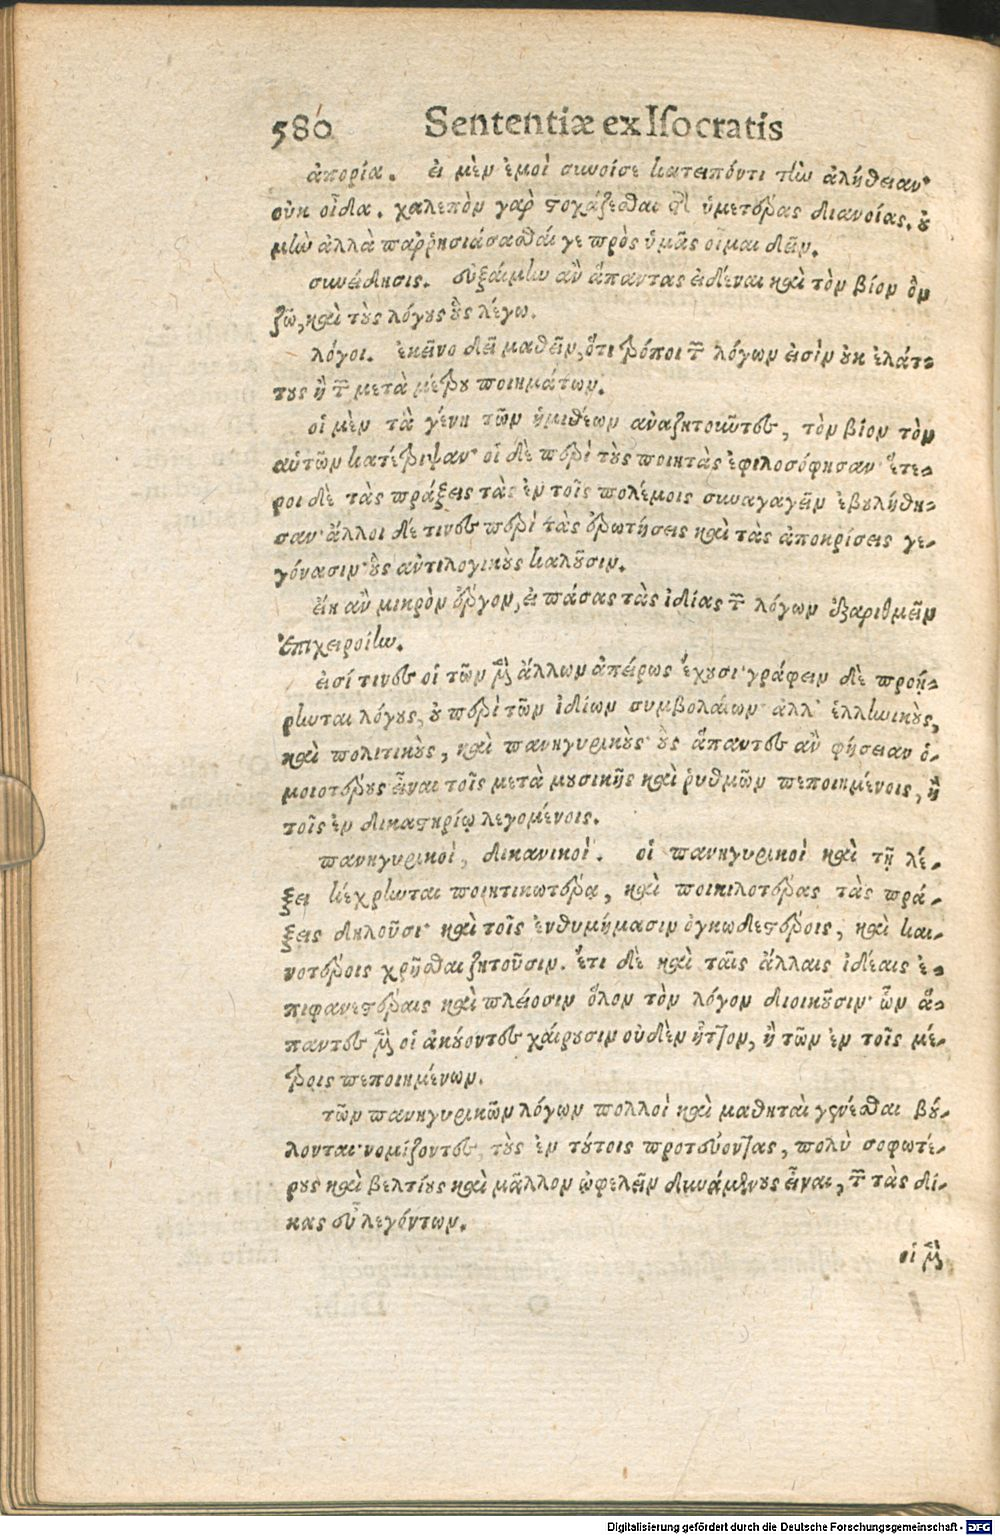 580 Sententiæ ex Iſocratis
ἀπορία. εἰ μὲν ἐμοὶ συνοίσε κατειπόντι τὴν ἀλήθειαν·
οὐκ οἶδα. χαλεπὸν γὰρ στοχάζεσθαι τῆς ὑμετέρας διανοίας. οὐ
μὴν ἀλλὰ παῤῥησιάσασθαί γε πρὸς ὑμᾶς οἶμαι δεῖν.
συνείδησις. εὐξαίμην ἂν ἅπαντας εἰδέναι καὶ τὸν βίον ὃν
ζῶ, καὶ τοὺς λόγους οὓς λέγω.
λόγοι. ἐκεῖνο δεῖ μαθεῖν, ὅτι τρόποι τῶν λόγων εἰσὶν οὐκ ἐλάτ-
τους ἢ τῶν μετὰ μέτρου ποιημάτων.
οἱ μὲν τὰ γένη τῶν ἡμιθέων ἀναζητοῦντες, τὸν βίον τὸν
αὑτῶν κατέτριψαν· οἱ δὲ περὶ τοὺς ποιητὰς ἐφιλοσόφησαν· ἕτε-
ροι δὲ τὰς πράξεις τὰς ἐν τοῖς πολέμοις συναγαγεῖν ἐβουλήθη-
σαν· ἄλλοι δέ τινες περὶ τὰς ἐρωτήσεις καὶ τὰς ἀποκρίσεις γε-
γόνασιν· οὓς ἀντιλογικοὺς καλοῦσιν.
εἴη ἂν μικρὸν ἔργον, εἰ πάσας τὰς ἰδίας τῶν λόγων ἐξαριθμεῖν
ἐπιχειροίην.
εἰσί τινες οἳ τῶν μὲν ἄλλων ἀπείρως ἔχουσι· γράφειν δὲ προῄ-
ρηνται λόγους, οὐ περὶ τῶν ἰδίων συμβολαίων· ἀλλ' ἑλληνικοὺς,
καὶ πολιτικοὺς, καὶ πανηγυρικοὺς· οὓς ἅπαντες ἂν φήσειαν ὁ-
μοιοτέρους εἶναι τοῖς μετὰ μουσικῆς καὶ ῥυθμῶν πεποιημένοις, ἢ
τοῖς ἐν δικαστηρίῳ λεγομένοις.
πανηγυρικοὶ, δικανικοί. οἱ πανηγυρικοὶ καὶ τῇ λέ-
ξει κέχρηνται ποιητικωτέρᾳ, καὶ ποικιλοτέρας τὰς πρά-
ξεις δηλοῦσι· καὶ τοῖς ἐνθυμήμασιν ὀγκωδεστέροις, καὶ και-
νοτέροις χρῆσθαι ζητοῦσιν. ἔτι δὲ καὶ ταῖς ἄλλαις ἰδέαις ἐ-
πιφανεστέραις καὶ πλείοσιν ὅλον τὸν λόγον διοικοῦσιν· ὧν ἅ-
παντες μὲν οἱ ἀκούοντες χαίρουσιν οὐδὲν ἧττον, ἢ τῶν ἐν τοῖς μέ-
τροις πεποιημένων.
τῶν πανηγυρικῶν λόγων πολλοὶ καὶ μαθηταὶ γενέσθαι βού-
λονται· νομίζοντες, τοὺς ἐν τούτοις πρωτεύοντας, πολὺ σοφωτέ-
ρους καὶ βελτίους καὶ μᾶλλον ὠφελεῖν δυναμένους εἶναι, τῶν τὰς δί-
κας εὖ λεγόντων.
οἱ μὲν
Digitalisierung gefördert durch die Deutsche Forschungsgemeinschaft - DFG